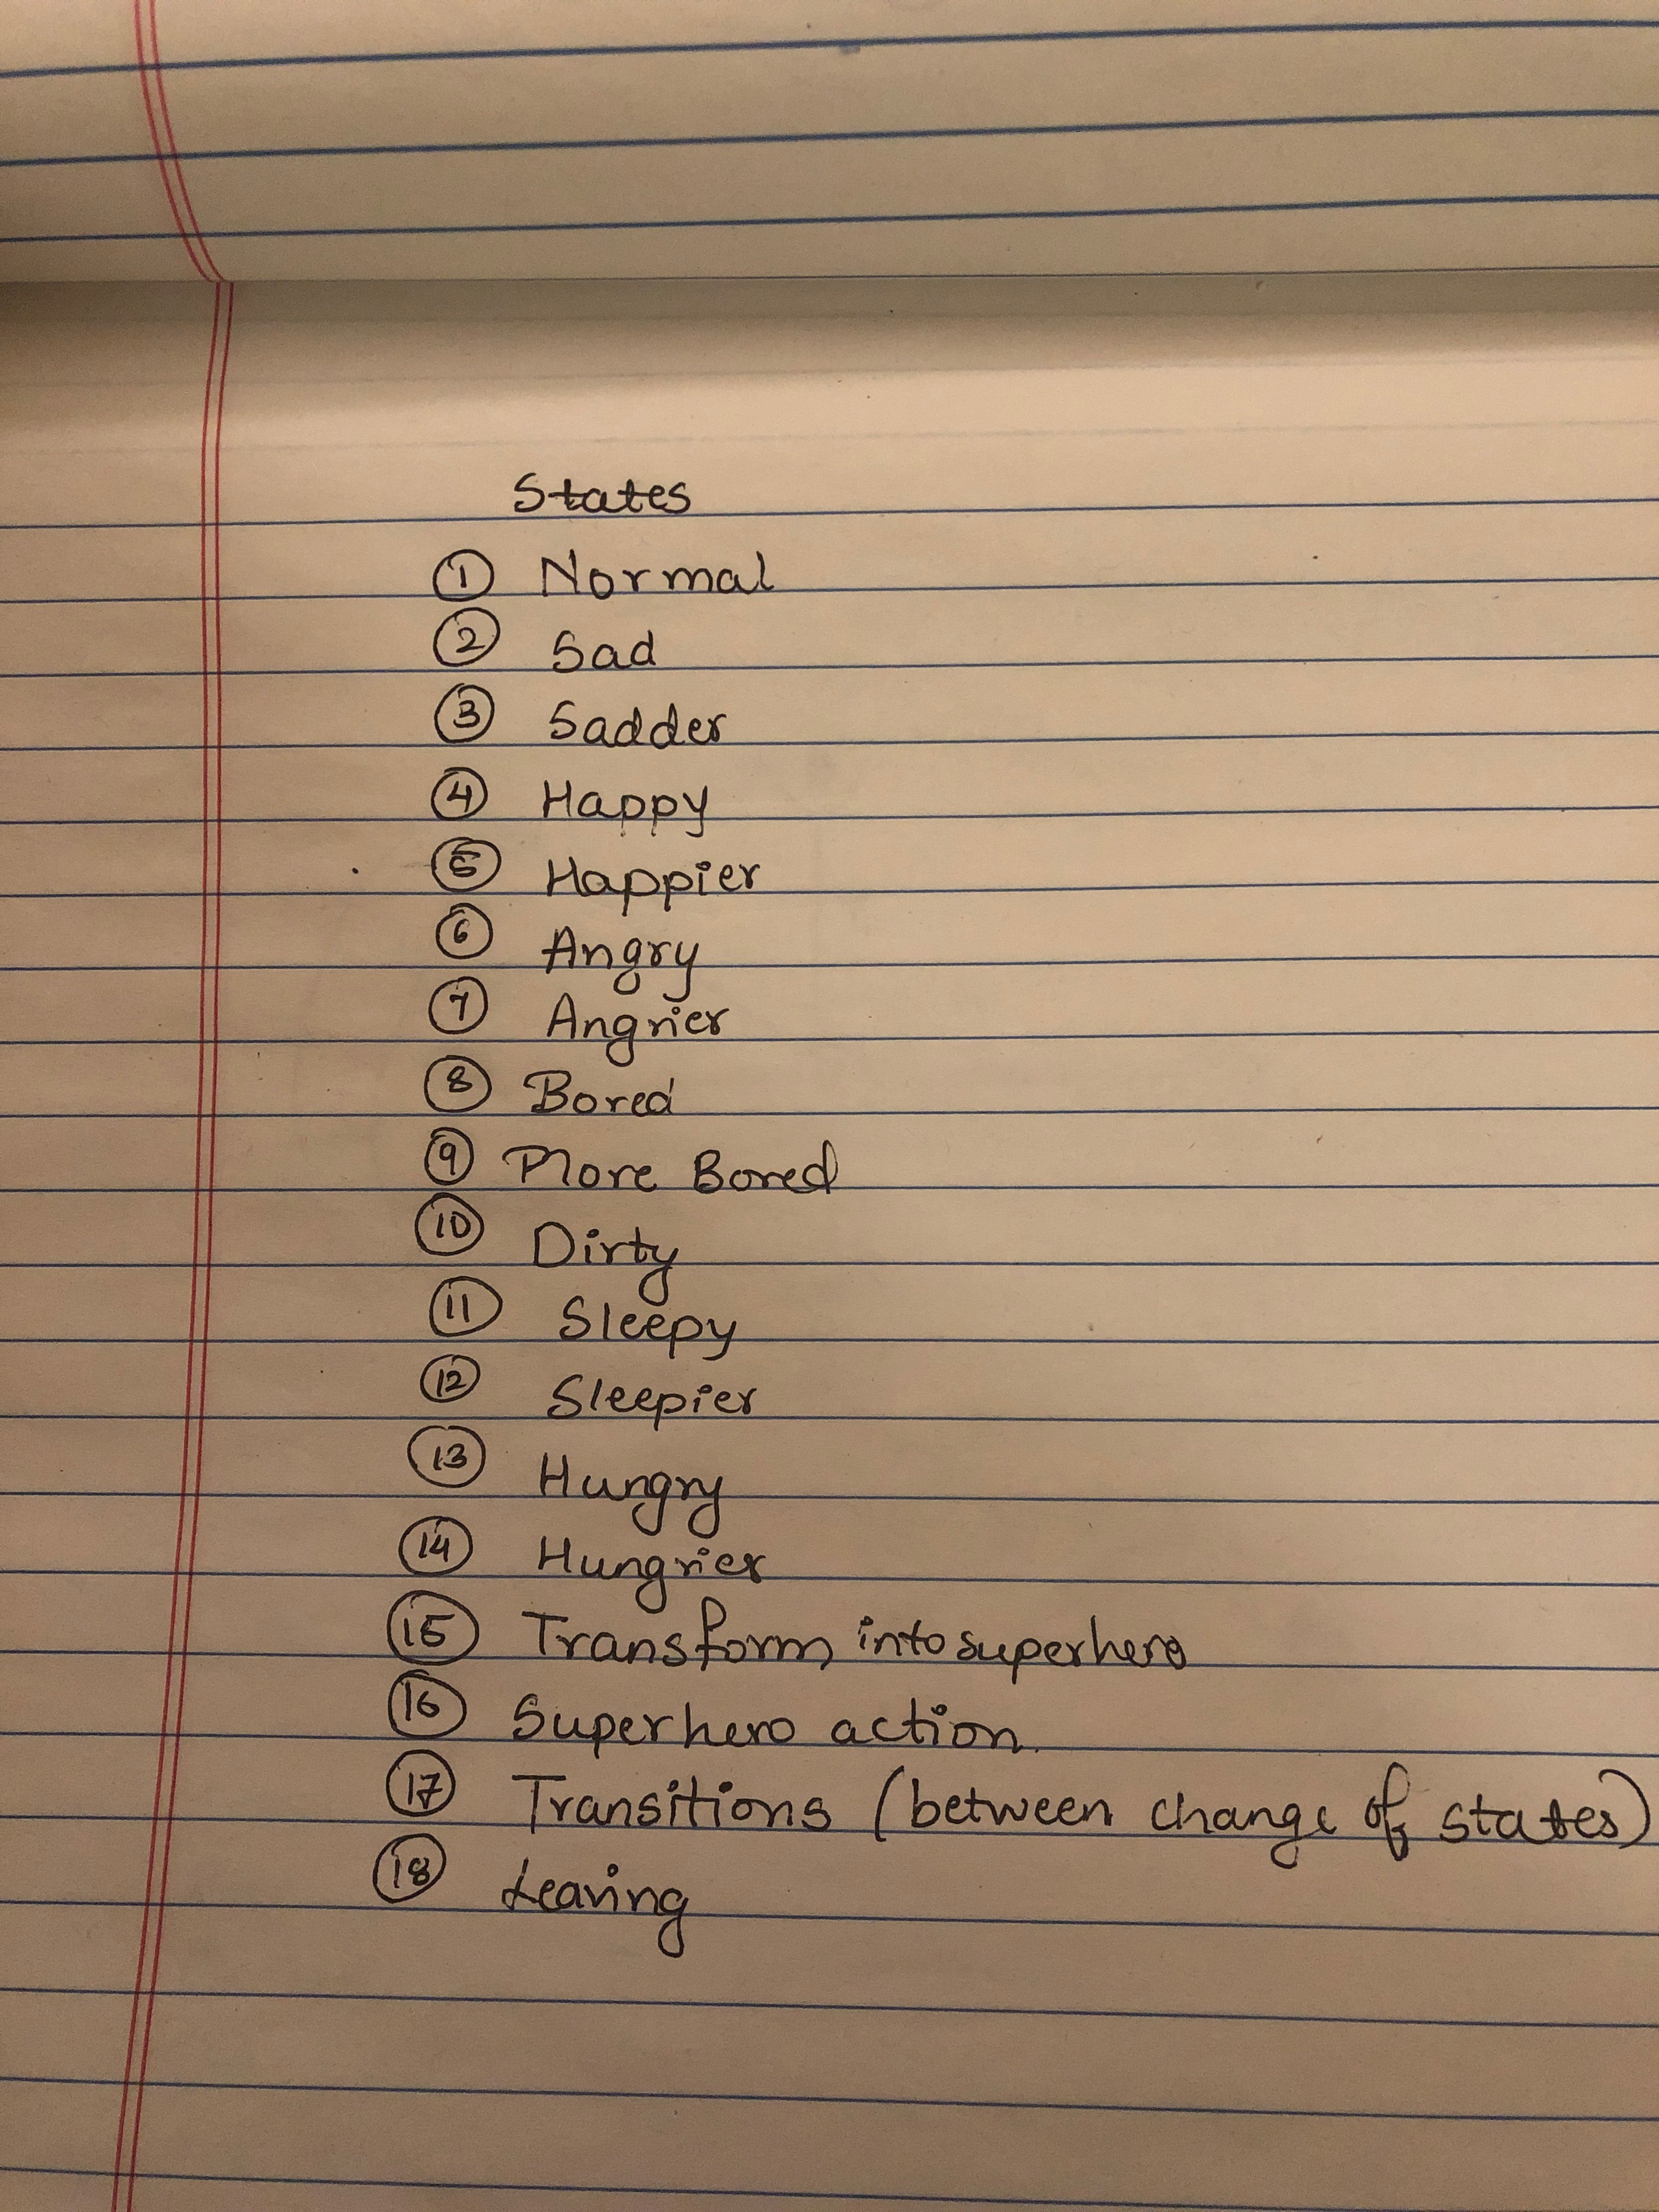 States
① Normal
② Sad
③ Sadder
④ Happy
⑤ Happier
⑥ Angry
⑦ Angrier
⑧ Bored
⑨ More Bored
⑩ Dirty
⑪ Sleepy
⑫ Sleepier
⑬ Hungry
⑭ Hungrier
⑮ Transform into superhero
⑯ Superhero action.
⑰ Transitions (between change of states)
⑱ Leaving